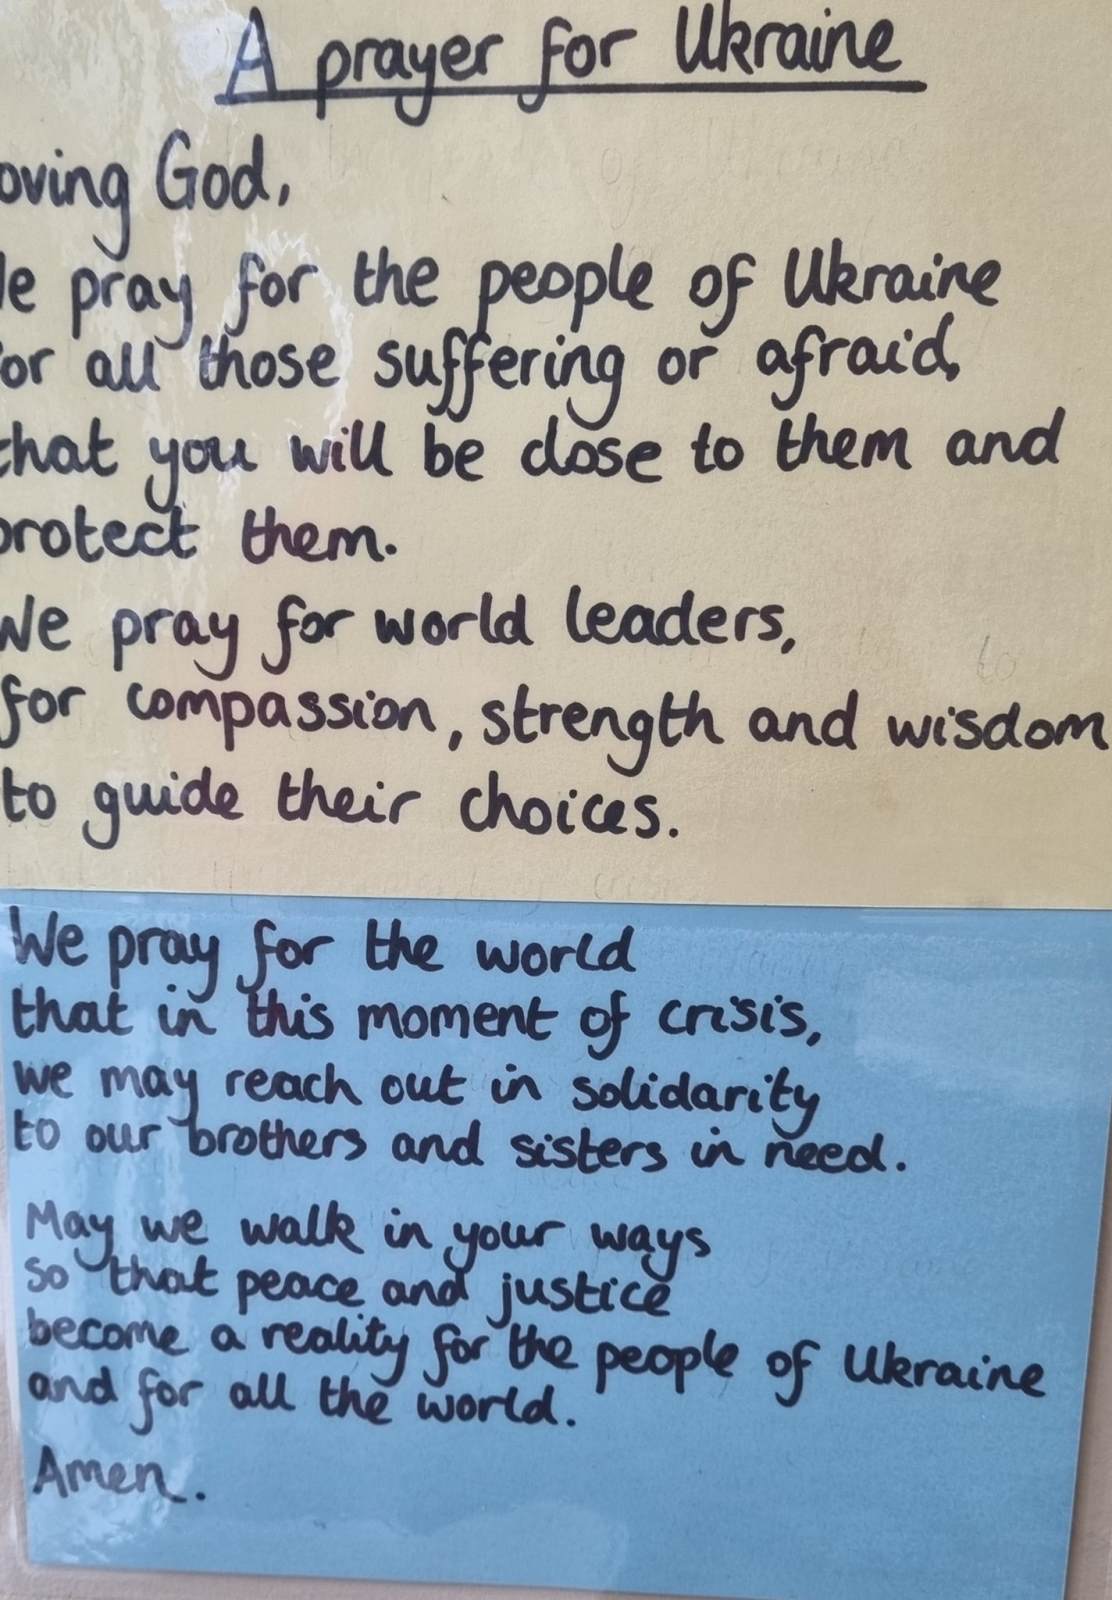 A prayer for Ukraine
oving God,
e pray for the people of Ukraine
or all those suffering or afraid,
that you will be close to them and
protect them.
We pray for world leaders,
for compassion, strength and wisdom
to guide their choices.
We pray for the world
that in this moment of crisis,
we may reach out in solidarity
to our brothers and sisters in need.
May we walk in your ways
so that peace and justice
become a reality for the people of Ukraine
and for all the world.
Amen.